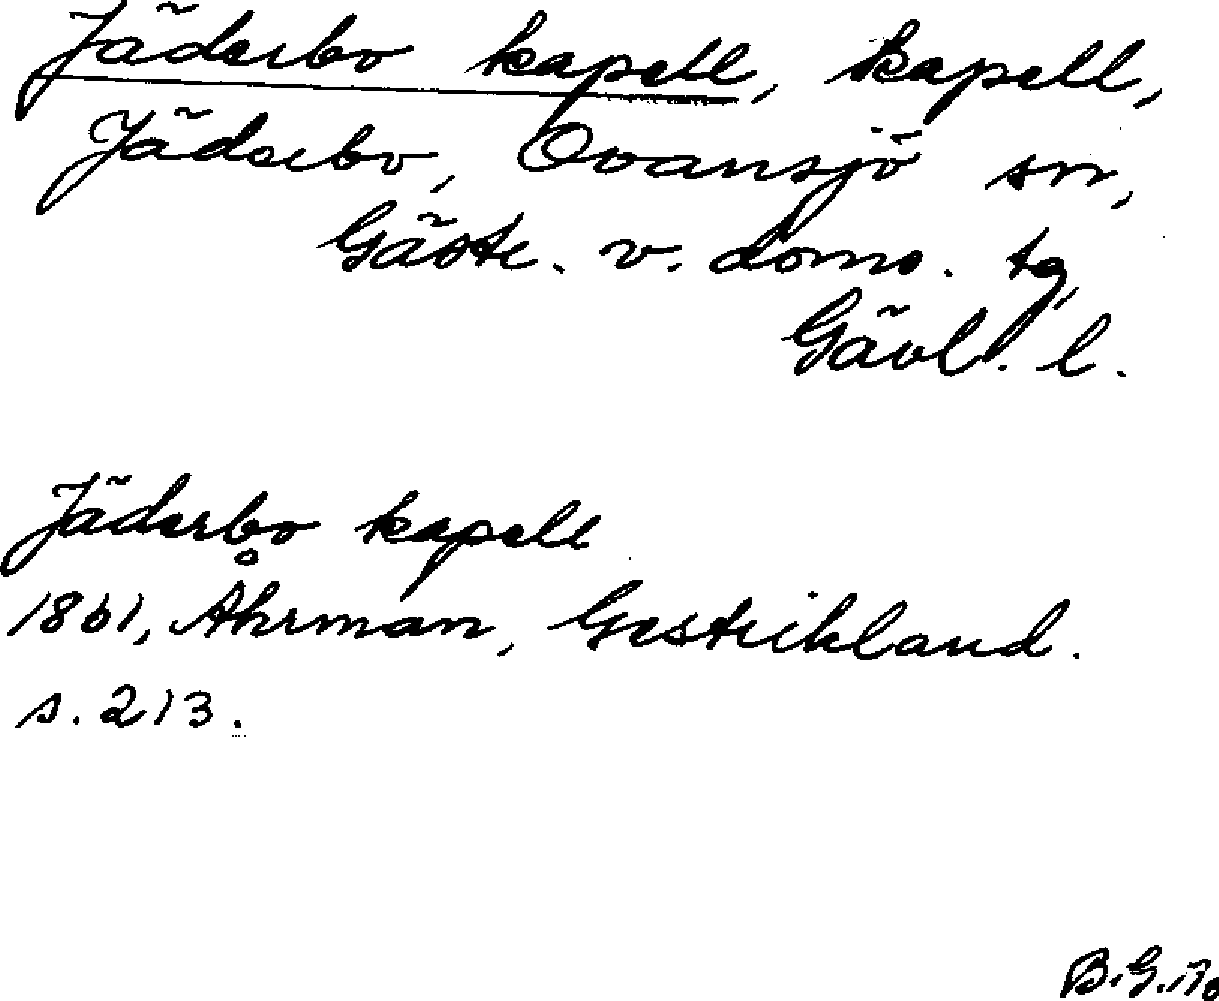 Jäderbo kapell, kapell,
Jäderbo, Ovansjö sn,
Gästr. v. doms. tg,
Gävl. l.
Jäderbo kapell
1861, Åhrman, Gestrikland.
s. 213.
B.G.